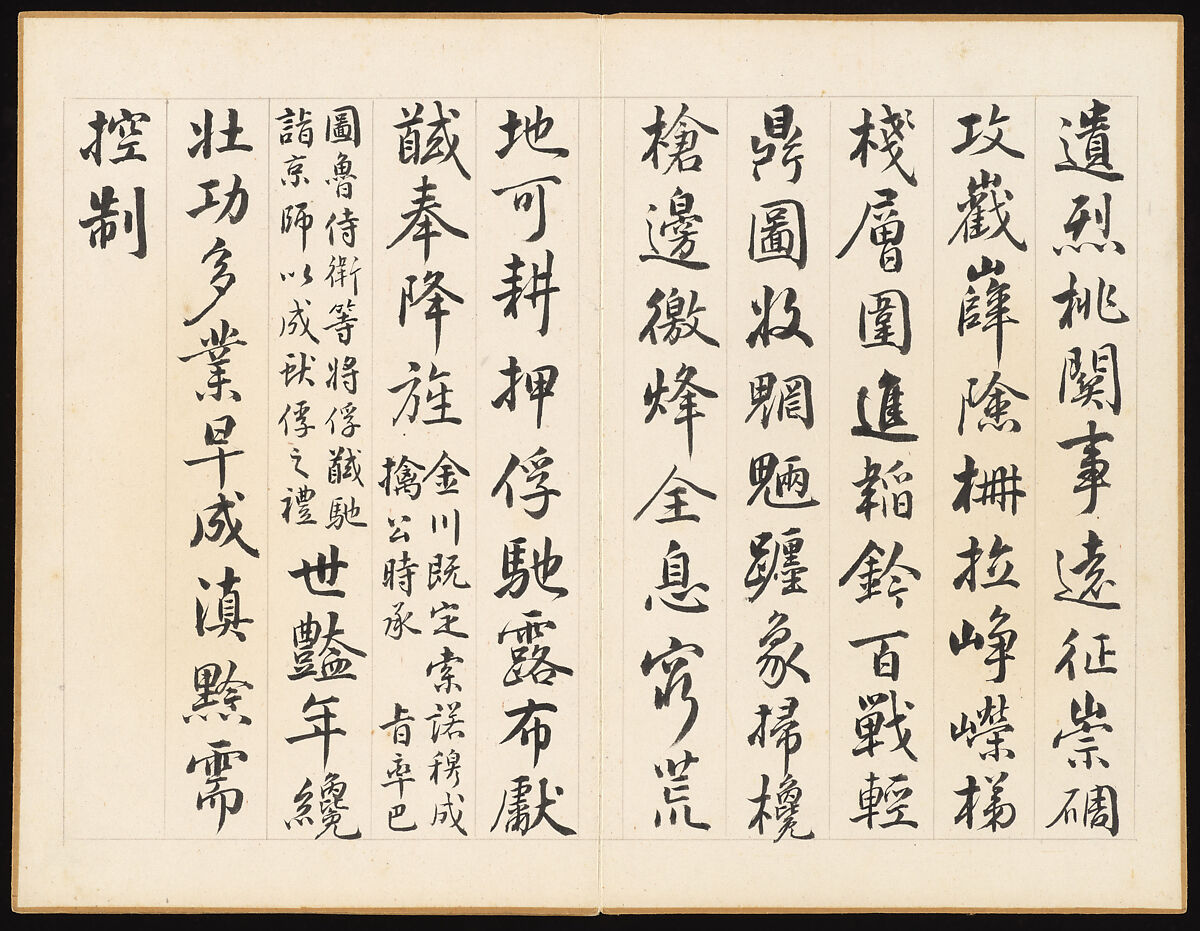 遺烈桃關事遠征崇碉
攻巀嶭險柵拉崢嶸梯
棧層圍進韜鈐百戰輕
鼎圖收魍魎躔象掃欃
槍邊徼烽全息窮荒
地可耕押俘馳露布獻
馘奉降旌
金川既定索諾穆成
擒公時承 旨率巴
圖魯侍衛等將俘馘馳
詣京師以成獻俘之禮
世豔年纔
壯功多業早成滇黔需
控制